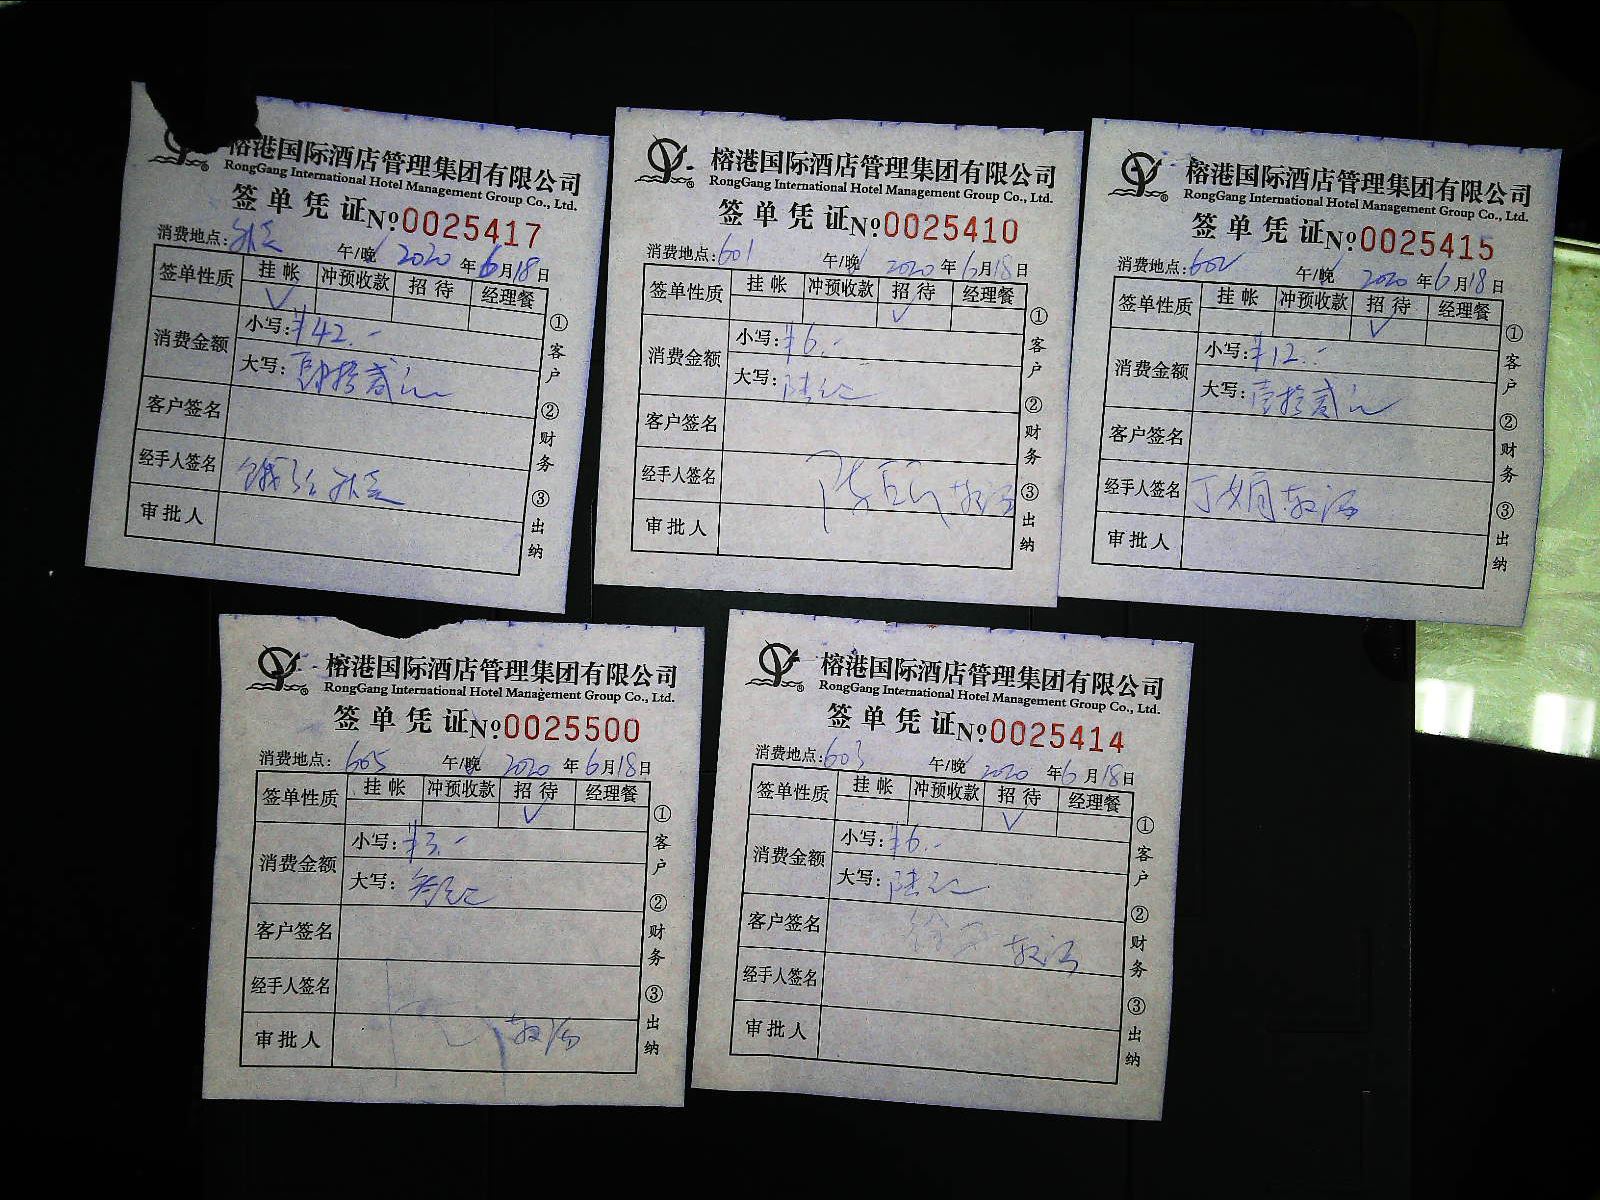 榕港国际酒店管理集团有限公司
RongGang International Hotel Management Group Co., Ltd.
签单凭证 №0025417
消费地点: 午/晚 2020年6月18日
签单性质 挂帐 冲预收款 招待 经理餐
✓
消费金额 小写: ¥42.-
大写: 肆拾贰元
客户签名
经手人签名
审批人
①客户 ②财务 ③出纳
榕港国际酒店管理集团有限公司
RongGang International Hotel Management Group Co., Ltd.
签单凭证 №0025410
消费地点: 601 午/晚 2020年6月18日
签单性质 挂帐 冲预收款 招待 经理餐
✓
消费金额 小写: ¥6.-
大写: 陆元
客户签名
经手人签名
审批人
①客户 ②财务 ③出纳
榕港国际酒店管理集团有限公司
RongGang International Hotel Management Group Co., Ltd.
签单凭证 №0025415
消费地点: 602 午/晚 2020年6月18日
签单性质 挂帐 冲预收款 招待 经理餐
✓
消费金额 小写: ¥12.-
大写: 壹拾贰元
客户签名
经手人签名 丁娟
审批人
①客户 ②财务 ③出纳
榕港国际酒店管理集团有限公司
RongGang International Hotel Management Group Co., Ltd.
签单凭证 №0025500
消费地点: 605 午/晚 2020年6月18日
签单性质 挂帐 冲预收款 招待 经理餐
✓
消费金额 小写: ¥3.-
大写: 叁元
客户签名
经手人签名
审批人
①客户 ②财务 ③出纳
榕港国际酒店管理集团有限公司
RongGang International Hotel Management Group Co., Ltd.
签单凭证 №0025414
消费地点: 603 午/晚 2020年6月18日
签单性质 挂帐 冲预收款 招待 经理餐
✓
消费金额 小写: ¥6.-
大写: 陆元
客户签名
经手人签名
审批人
①客户 ②财务 ③出纳